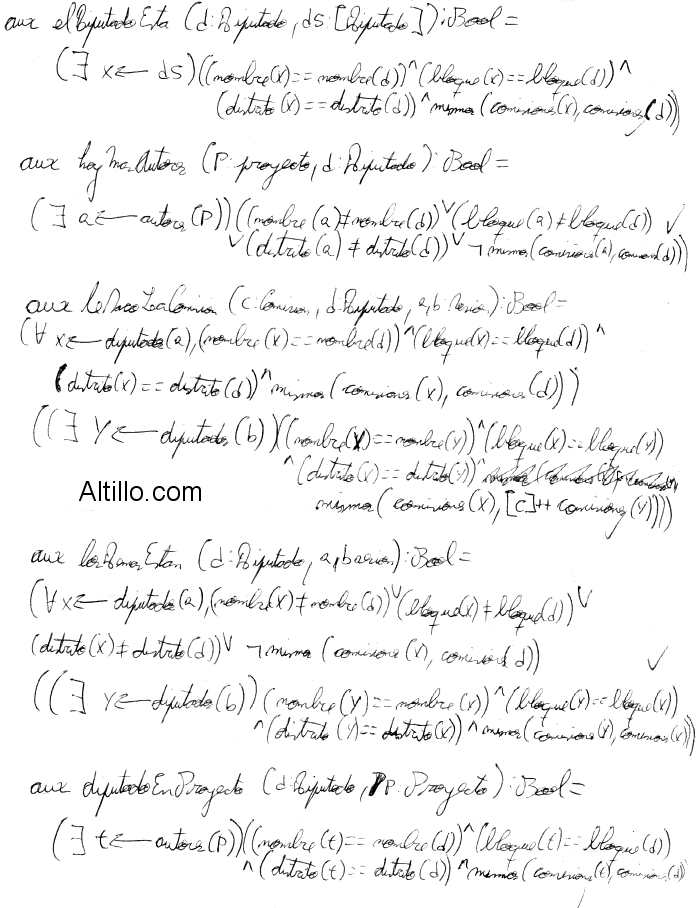 aux elDiputadoEsta (d:Diputado, ds:[Diputado]):Bool=
(∃ x← ds)((nombre(x)==nombre(d))^(bloque(x)==bloque(d))^
(distrito(x)==distrito(d))^mismos(comisiones(x),comisiones(d)))
aux hayMasAutores (P:proyecto, d:Diputado):Bool=
(∃ a← autores(P))((nombre(a)≠nombre(d))∨(bloque(a)≠bloque(d)) ✓
∨(distrito(a)≠distrito(d))∨¬mismos(comisiones(a),comisiones(d)))
aux (c:Comision, d:Diputado, a,b:Sesion):Bool=
(∀ x← diputados(a),(nombre(x)==nombre(d))^(bloque(x)==bloque(d))^
(distrito(x)==distrito(d))^mismos(comisiones(x),comisiones(d)))
((∃ y← diputados(b))((nombre(x)==nombre(y))^(bloque(x)==bloque(y))
^(distrito(x)==distrito(y))^
mismos(comisiones(x),[c]++comisiones(y))))
Altillo.com
aux losDemasEstan (d:Diputado, a,b:sesion):Bool=
(∀x← diputados(a),(nombre(x)≠nombre(d))∨(bloque(x)≠bloque(d))∨
(distrito(x)≠distrito(d))∨ ¬mismos(comisiones(x),comisiones(d)) ✓
((∃ y← diputados(b))(nombre(y)==nombre(x))^(bloque(y)==bloque(x))
^(distrito(y)==distrito(x))^mismos(comisiones(y),comisiones(x)))
aux diputadoEnProyecto (d:Diputado, P:Proyecto):Bool=
(∃ t← autores(P))((nombre(t)==nombre(d))^(bloque(t)==bloque(d))
^(distrito(t)==distrito(d))^mismos(comisiones(t),comisiones(d)